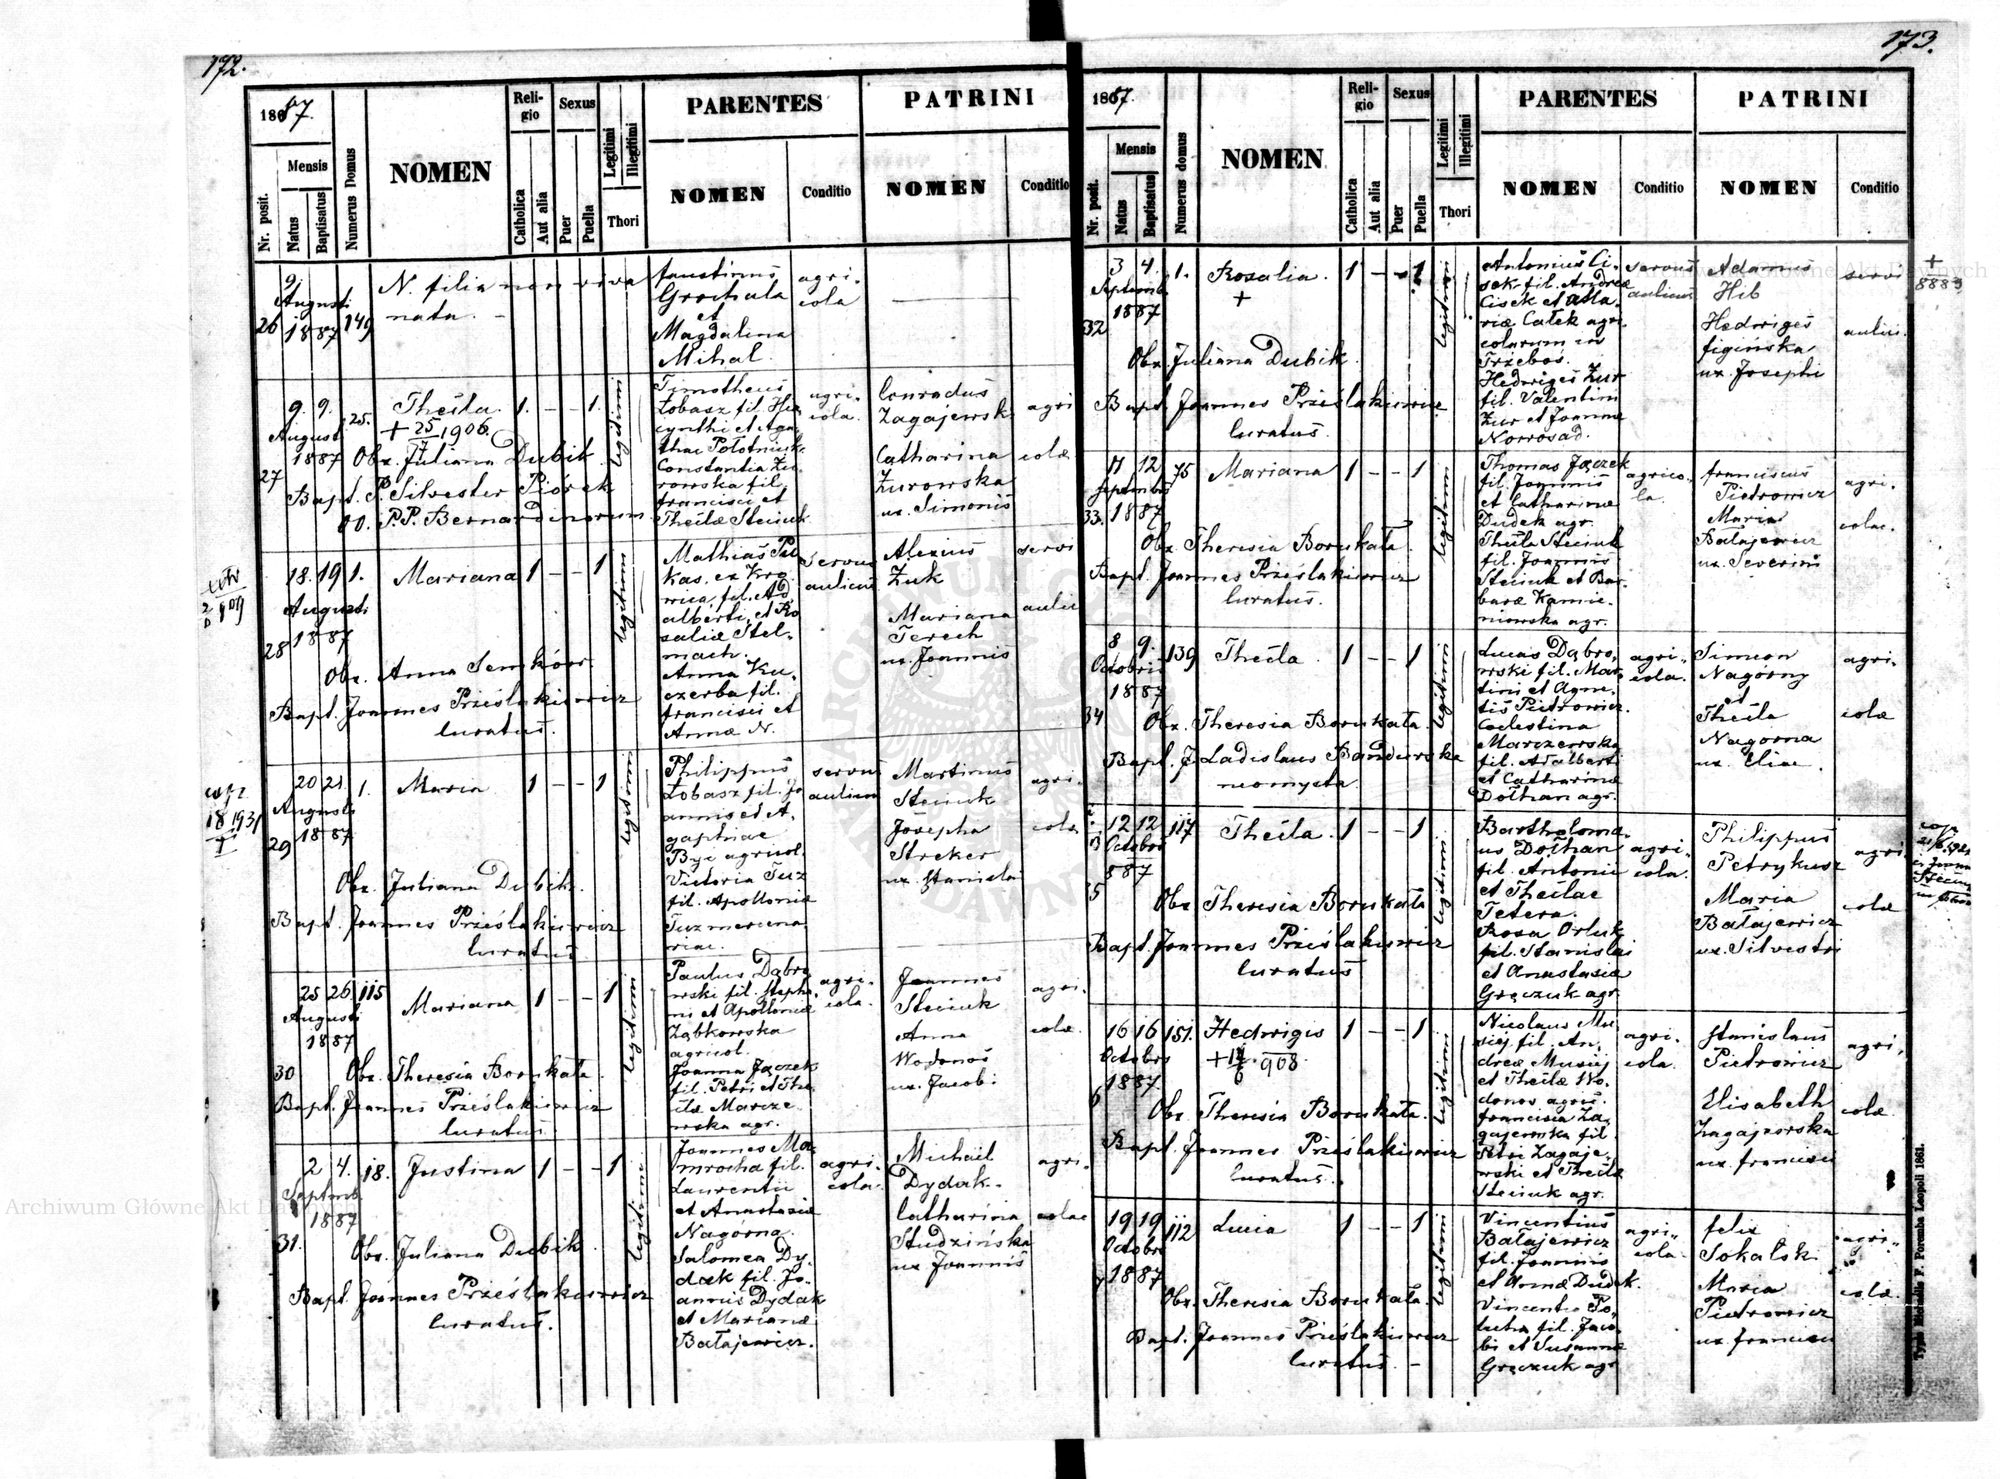 172.
1887.
Nr. posit.
Mensis
Natus
Baptisatus
Numerus Domus
NOMEN
Religio
Catholica
Aut alia
Sexus
Puer
Puella
Legitimi
Illegitimi
Thori
PARENTES
NOMEN
Conditio
PATRINI
NOMEN
Conditio
26
9
Augusti
1887
149
N. filia non viva
nata. -
Faustinus
Grochala
et
Magdalina
Mihal.
agri-
cola
27
9. 9.
August
1887
25.
Thecla. 1. - - 1.
+ 25/7 1906.
Obx. Juliana Dubik
Bapt. P. Silvester Piórek
OO. P.P. Bernardinorum
legitimi
Timotheus
Łobasz fil. Hia-
cynthi et Aga-
thae Połotniuk
Constantia Żu-
rowska fil.
Francisci et
Theclæ Steciuk
agri-
cola.
Conradus
Zagajewsk
Catharina
Żurowska
ux. Simonis
agri
colæ
28
18. 19. 1.
Augusti
1887
Mariana 1 - - 1
Obx. Anna
Bapt. Joannes Prześlakiewicz
Curatus.
legitimi
Mathias
kas. ex Kro
wica, fil. Ad
alberti, et Ro
saliæ Stel-
mach.
Anna Ku-
czerba fil.
Francisci et
Annæ N.
servus
aulicus
Alexius
Żuk
Mariana
Terech
ux. Joannis
servi
aulici
29
20 21. 1.
Augusti
1887
Maria 1 - - 1
Obx. Juliana Dubik.
Bapt. Joannes Prześlakiewicz
Curatus
legitimi
Philippus
Łobasz fil. Jo
annis et A-
gaphiae
Byc agricol.
Victoria Tuz
fil. Apolloniæ
Tuz
servus
aulicus
Martinus
Steciuk
Josepha
Streker
ux. Stanislai
agri-
colæ
30
25 26. 115
Augusti
1887
Mariana 1 - - 1
Obx. Theresia Borukała.
Bapt. Joannes Prześlakiewicz
Curatus.
legitimi
Paulus Dąbro
wski fil. Stepha-
ni et Apolloniæ
Ząbkowska
agricol.
Joanna Jączek
fil. Petri et The
clæ Marcze-
wska agr.
agri-
cola.
Joannes
Steciuk
Anna
Wodonos
ux. Jacobi
agri-
colæ
31.
2 4. 18.
Septemb.
1887
Justina 1 - - 1
Obx. Juliana Dubik.
Bapt. Joannes Prześlakiewicz
Curatus.
legitimi
Joannes Ma-
mrocha fil.
Laurentii
et Anastasiæ
Nagórna.
Salomea Dy-
dak fil. Jo-
annis Dydak
et Marianæ
Bałajewicz.
agri-
cola.
Michael
Dydak.
Catharina
Studzińska
ux Joannis
agri-
colae
173.
1887.
Nr. posit.
Mensis
Natus
Baptisatus
Numerus domus
NOMEN
Religio
Catholica
Aut alia
Sexus
Puer
Puella
Legitimi
Illegitimi
Thori
PARENTES
NOMEN
Conditio
PATRINI
NOMEN
Conditio
32
3 4. 1.
Septemb.
1887
Rosalia. 1 - - 1
+
Obx Juliana Dubik.
Bapt. Joannes Prześlakiewicz
Curatus.
legitimi
Antonius Ci-
sek fil. Andreæ
Cisek et Ma-
riæ Całek agri
colarum in
Trzebos.
Hedwiges Żur
fil. Valentini
Żur et Joannæ
Noworad.
servus
aulicus
Adamus
Hib
Hedwiges
Figińska
ux. Josephi
servi
aulici.
33.
11 12 75
Septembr
1887
Mariana 1 - - 1
Obx Theresia Borukała.
Bapt. Joannes Prześlakiewicz
Curatus.
legitimi
Thomas Jączek
fil. Joannis
et Catharinæ
Dudek agr.
Thecla Steciuk
fil. Joannis
Steciuk et Bar-
baræ Kamie-
niowska agr.
agrico-
la.
Franciscus
Pietrowicz
Maria
Bałajewicz
ux. Severini
agri-
colae.
34
8 9. 139
Octobris
1887
Thecla. 1 - - 1
Obx. Theresia Borukała.
Bapt. J. Ladislaus Bandurska
neomysta.
legitimi
Lucas Dąbro-
wski fil. Mar-
tini et Agne-
tis Pietrowicz.
Coelestina
Marczewska
fil. Adalberti
et Catharinæ
Dołhan agr.
agri-
cola.
Simeon
Nagórny
et
Thecla
Nagórna
ux. Eliae.
agri-
colæ
5
12 12 117
Octobri
887
Thecla. 1 - - 1
Obx Theresia Borukała
Bapt. Joannes Prześlakiewicz
Curatus
legitimi
Bartholomæ-
us Dołhan
fil. Antonii
et Theclae
Tetera.
Rosa Orluk
fil. Stanislai
et Anastasiæ
Gręczuk agr.
agri-
cola.
Philippus
Petrykusz
Maria
Bałajewicz
ux. Silvestri
agri
colæ
6
16 16 151.
Octobris
1887.
Hedwigis 1 - - 1
+ 908
Obx. Theresia Borukała.
Bapt. Joannes Prześlakiewicz
Curatus.
legitimi
Nicolaus Mu-
siej fil. An-
dreæ Musiej
et Theclæ Wo-
donos agric.
Francisca Za-
gajewska fil.
Petri Zagaje-
wski et Theclæ
Steciuk agr.
agri-
cola.
Stanislaus
Pietrowicz
Elisabeth
Zagajewska
ux. Francisci
agri-
colæ
7
19 19 112
Octobr
1887
Lucia 1 - - 1
Obx. Theresia Borukała.
Bapt. Joannes Prześlakiewicz
Curatus. -
legitimi
Vincentius
Bałajewicz
fil. Joannis
et Annæ Dudek.
Vincentia Po-
lucha fil. Jaco-
bi et Susannæ
Gręczuk agr
agri-
cola.
Felix
Sokalski
Maria
Pietrowicz
ux. Francisci
agri-
colæ.
Typis Michaelis F. Poremba Leopoli 1861.
Archiwum Główne Akt Dawnych
Archiwum Główne Akt Dawnych
ARCHIWUM GŁÓWNE AKT DAWNYCH